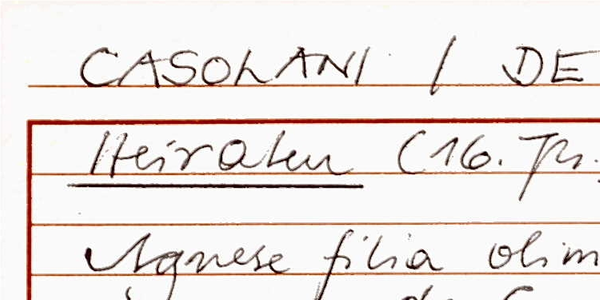 CASOLANI / DE
Heiraten (16. Jh.
Agnese filia olim